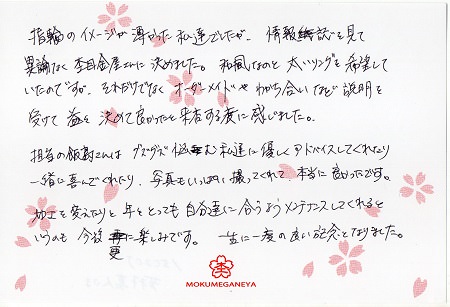 指輪のイメージが薄かった私達でしたが、情報誌を見て
異論なく杢目金屋さんに決めました。和風なのと太いリングを希望して
いたのですが、それだけでなくオーダーメイドやわかち合いなど説明を
受けて益々決めて良かったと来店する度に感じました。
担当の飯島さんはグズグズ悩む私達に優しくアドバイスしてくれたり
一緒に喜んでくれたり、写真もいっぱい撮ってくれて、本当に良かったです。
仕上を変えたりと年をとっても自分達に合うようメンテナンスしてくれると
いうのも今後更に楽しみです。一生に一度の良い記念となりました。
MOKUMEGANEYA